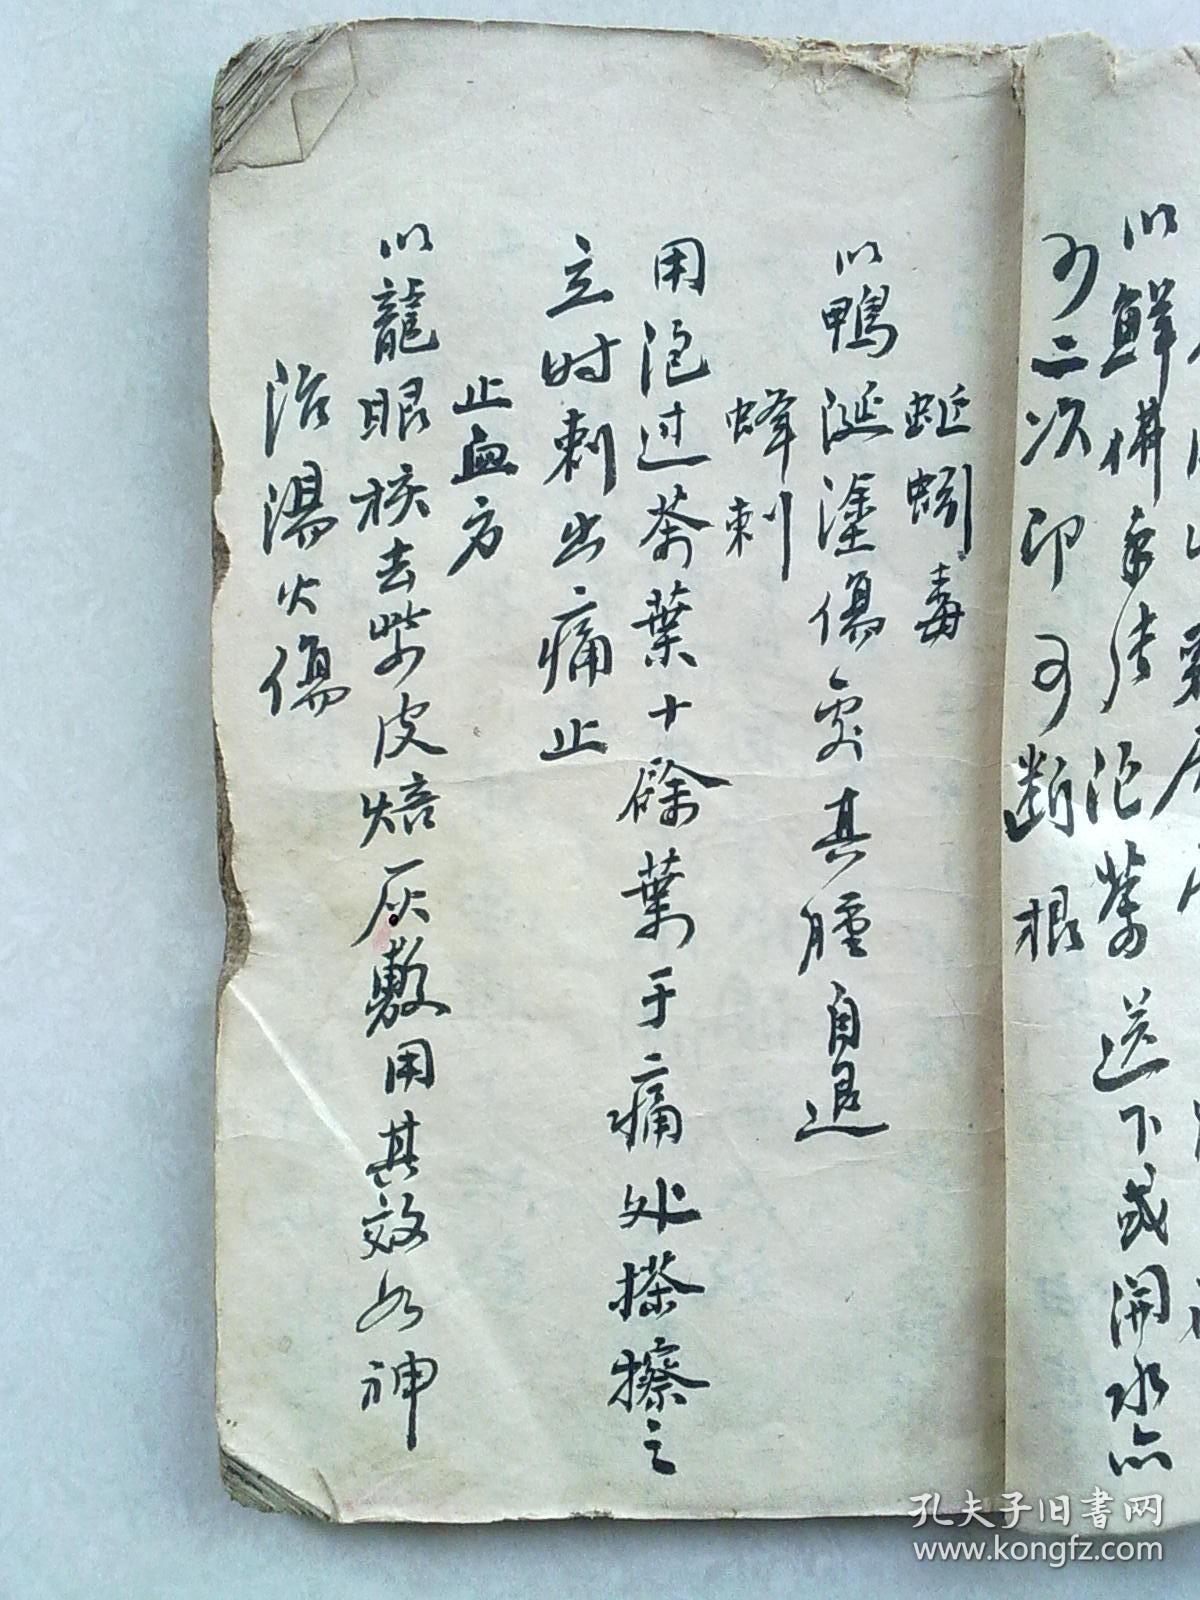 以鮮佛手
泡茶送下或開水亦
可二次即可断根
蚯蚓毒
以鴨涎塗傷處其腫自退
蜂刺
用泡过茶葉十餘葉于痛处搽擦之
立时刺出痛止
止血方
以龍眼核去紫皮焙灰敷用其效如神
治湯火傷
孔夫子旧书网
www.kongfz.com